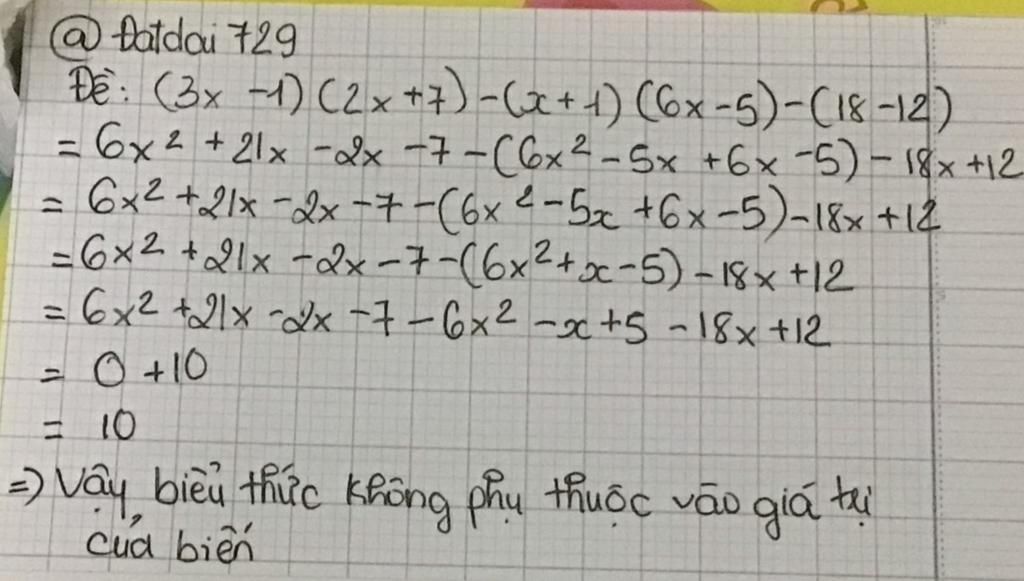 @ Đatdai 729
Đề: (3x -1) (2x +7) - (x + 1) (6x - 5) - (18 - 12)
= 6x² + 21x - 2x - 7 - (6x² - 5x + 6x - 5) - 18x + 12
= 6x² + 21x - 2x - 7 - (6x² - 5x + 6x - 5) - 18x + 12
= 6x² + 21x - 2x - 7 - (6x² + x - 5) - 18x + 12
= 6x² + 21x - 2x - 7 - 6x² - x + 5 - 18x + 12
= 0 + 10
= 10
=> Vậy, biểu thức không phụ thuộc vào giá trị
của biến